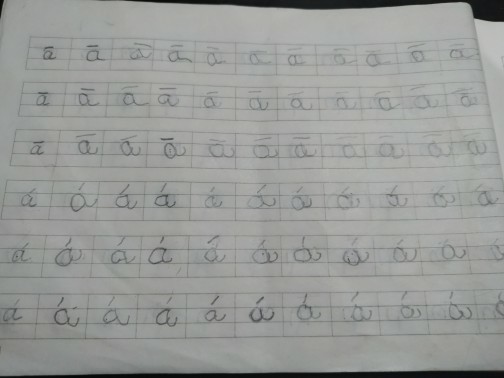 ā ā ā ā ā ā ā ā ā ā ā
ā ā ā ā ā ā ā ā ā ā ā
ā ā ā ā ā ā ā ā ā ā ā
á á á á á á á á á á á
á á á á á á á á á á á
á á á á á á á á á á á